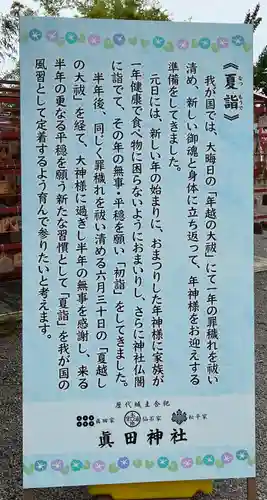 《夏詣》
なつもうで
我が国では、大晦日の「年越の大祓」にて一年の罪穢れを祓い
清め、新しい御魂と身体に立ち返って、年神様をお迎えする
準備をしてきました。
元日には、新しい年の始まりに、おまつりした年神様に家族が
一年健康で食べ物に困らないようにおまいりし、さらに神社仏閣
に詣でて、その年の無事・平穏を願い「初詣」をしてきました。
半年後、同じく罪穢れを祓い清める六月三十日の「夏越し
の大祓」を経て、大神様に過ぎし半年の無事を感謝し、来る
半年の更なる平穏を願う新たな習慣として「夏詣」を我が国の
風習として定着するよう育んで参りたいと考えます。
歴代城主合祀
眞田家
仙石家
松平家
眞田神社